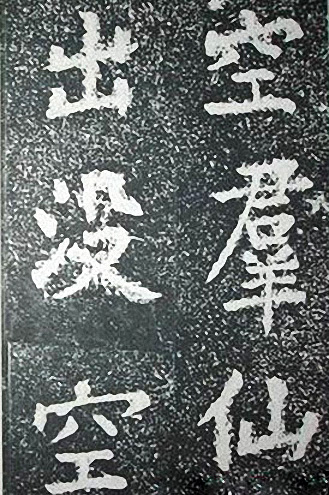 空羣仙
出没空